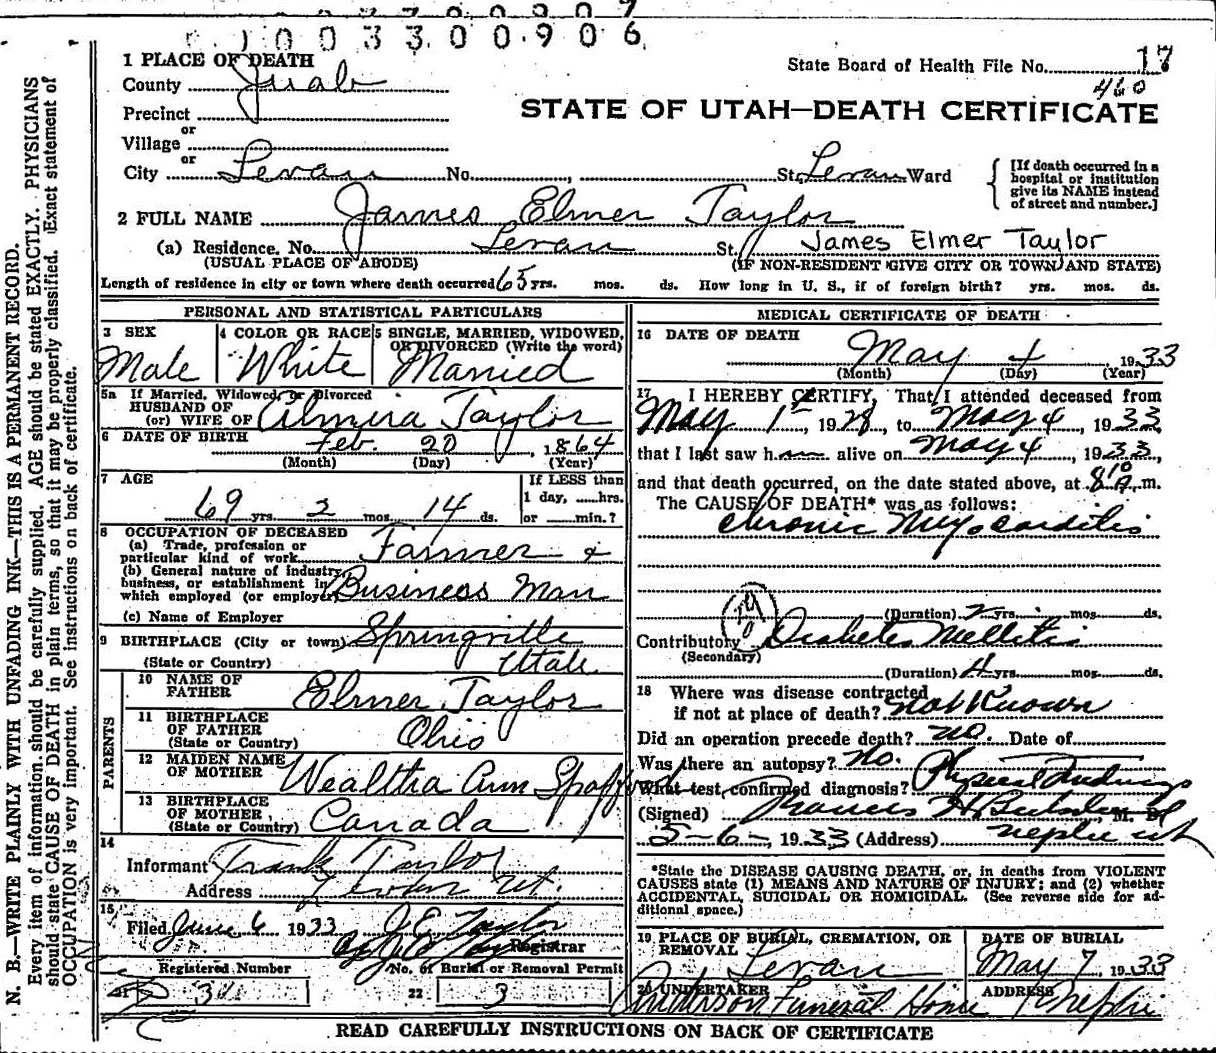 1003300906
1 PLACE OF DEATH
State Board of Health File No. 17
County Juab
460
STATE OF UTAH—DEATH CERTIFICATE
Precinct
or
Village
or
City Levan No. , St. Levan Ward
[If death occurred in a hospital or institution give its NAME instead of street and number.]
2 FULL NAME James Elmer Taylor
(a) Residence. No. Levan St. James Elmer Taylor
(USUAL PLACE OF ABODE) (IF NON-RESIDENT GIVE CITY OR TOWN AND STATE)
Length of residence in city or town where death occurred 65 yrs. mos. ds. How long in U. S., if of foreign birth? yrs. mos. ds.
PERSONAL AND STATISTICAL PARTICULARS
3 SEX
Male
4 COLOR OR RACE
White
5 SINGLE, MARRIED, WIDOWED, OR DIVORCED (Write the word)
Married
5a If Married, Widowed, or Divorced
HUSBAND OF
(or) WIFE OF Almira Taylor
6 DATE OF BIRTH Feb. 20, 1864
(Month) (Day) (Year)
7 AGE
69 yrs. 2 mos. 14 ds.
If LESS than
1 day, hrs.
or min.?
8 OCCUPATION OF DECEASED
(a) Trade, profession or
particular kind of work Farmer +
(b) General nature of industry,
business, or establishment in
which employed (or employer) Business Man
(c) Name of Employer
9 BIRTHPLACE (City or town) Springville
(State or Country) Utah
PARENTS
10 NAME OF
FATHER Elmer Taylor
11 BIRTHPLACE
OF FATHER
(State or Country) Ohio
12 MAIDEN NAME
OF MOTHER Wealtha Ann Spafford
13 BIRTHPLACE
OF MOTHER,
(State or Country) Canada
14
Informant Frank Taylor
Address Levan Ut.
15
Filed June 6 1933 J. E. Taylor
By J. E. Taylor Registrar
Registered Number
No. of Burial or Removal Permit
21
22 3
MEDICAL CERTIFICATE OF DEATH
16 DATE OF DEATH
May 4 1933
(Month) (Day) (Year)
17 I HEREBY CERTIFY, That I attended deceased from
May 1st, 1928, to May 4, 1933,
that I last saw him alive on May 4, 1933,
and that death occurred, on the date stated above, at 8 10 A. m.
The CAUSE OF DEATH* was as follows:
Chronic Myocarditis
(Duration) 2 yrs. mos. ds.
Contributory Diabetes Mellitis
(Secondary)
(Duration) 4 yrs. mos. ds.
18 Where was disease contracted
if not at place of death? Not Known
Did an operation precede death? no. Date of
Was there an autopsy? No.
What test confirmed diagnosis? Physical Findings
(Signed) M. D.
5-6-, 1933 (Address) Nephi Ut
*State the DISEASE CAUSING DEATH, or, in deaths from VIOLENT
CAUSES state (1) MEANS AND NATURE OF INJURY; and (2) whether
ACCIDENTAL, SUICIDAL OR HOMICIDAL. (See reverse side for ad-
ditional space.)
19 PLACE OF BURIAL, CREMATION, OR
REMOVAL
Levan
DATE OF BURIAL
May 7 1933
20 UNDERTAKER
Anderson Funeral Home
ADDRESS
Nephi
READ CAREFULLY INSTRUCTIONS ON BACK OF CERTIFICATE
N. B.—WRITE PLAINLY WITH UNFADING INK—THIS IS A PERMANENT RECORD.
Every item of information should be carefully supplied. AGE should be stated EXACTLY. PHYSICIANS
should state CAUSE OF DEATH in plain terms, so that it may be properly classified. Exact statement of
OCCUPATION is very important. See instructions on back of certificate.